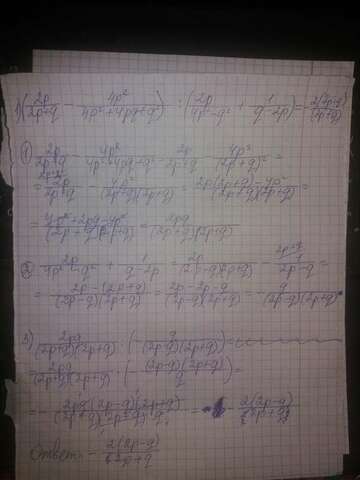 1) (2p/(2p+q) - 4p²/(4p²+4pq+q²)) : (2p/(4p²-q²) + 1/(q-2p)) =
① 2p/(2p+q) - 4p²/(4p²+4pq+q²) = 2p/(2p+q) - 4p²/(2p+q)² =
= 2p/(2p+q) - 4p²/((2p+q)(2p+q)) = (2p(2p+q)-4p²)/((2p+q)(2p+q)) =
= (4p²+2pq-4p²)/((2p+q)(2p+q)) = 2pq/((2p+q)(2p+q))
② 2p/(4p²-q²) + 1/(q-2p) = 2p/((2p-q)(2p+q)) - 1/(2p-q) =
= (2p-(2p+q))/((2p-q)(2p+q)) = (2p-2p-q)/((2p-q)(2p+q)) = -q/((2p-q)(2p+q))
3) 2pq/((2p+q)(2p+q)) : (-q/((2p-q)(2p+q))) =
= 2pq/((2p+q)(2p+q)) · (-(2p-q)(2p+q)/q) =
= -2pq(2p-q)(2p+q)/((2p+q)(2p+q)q) =
Ответ: -